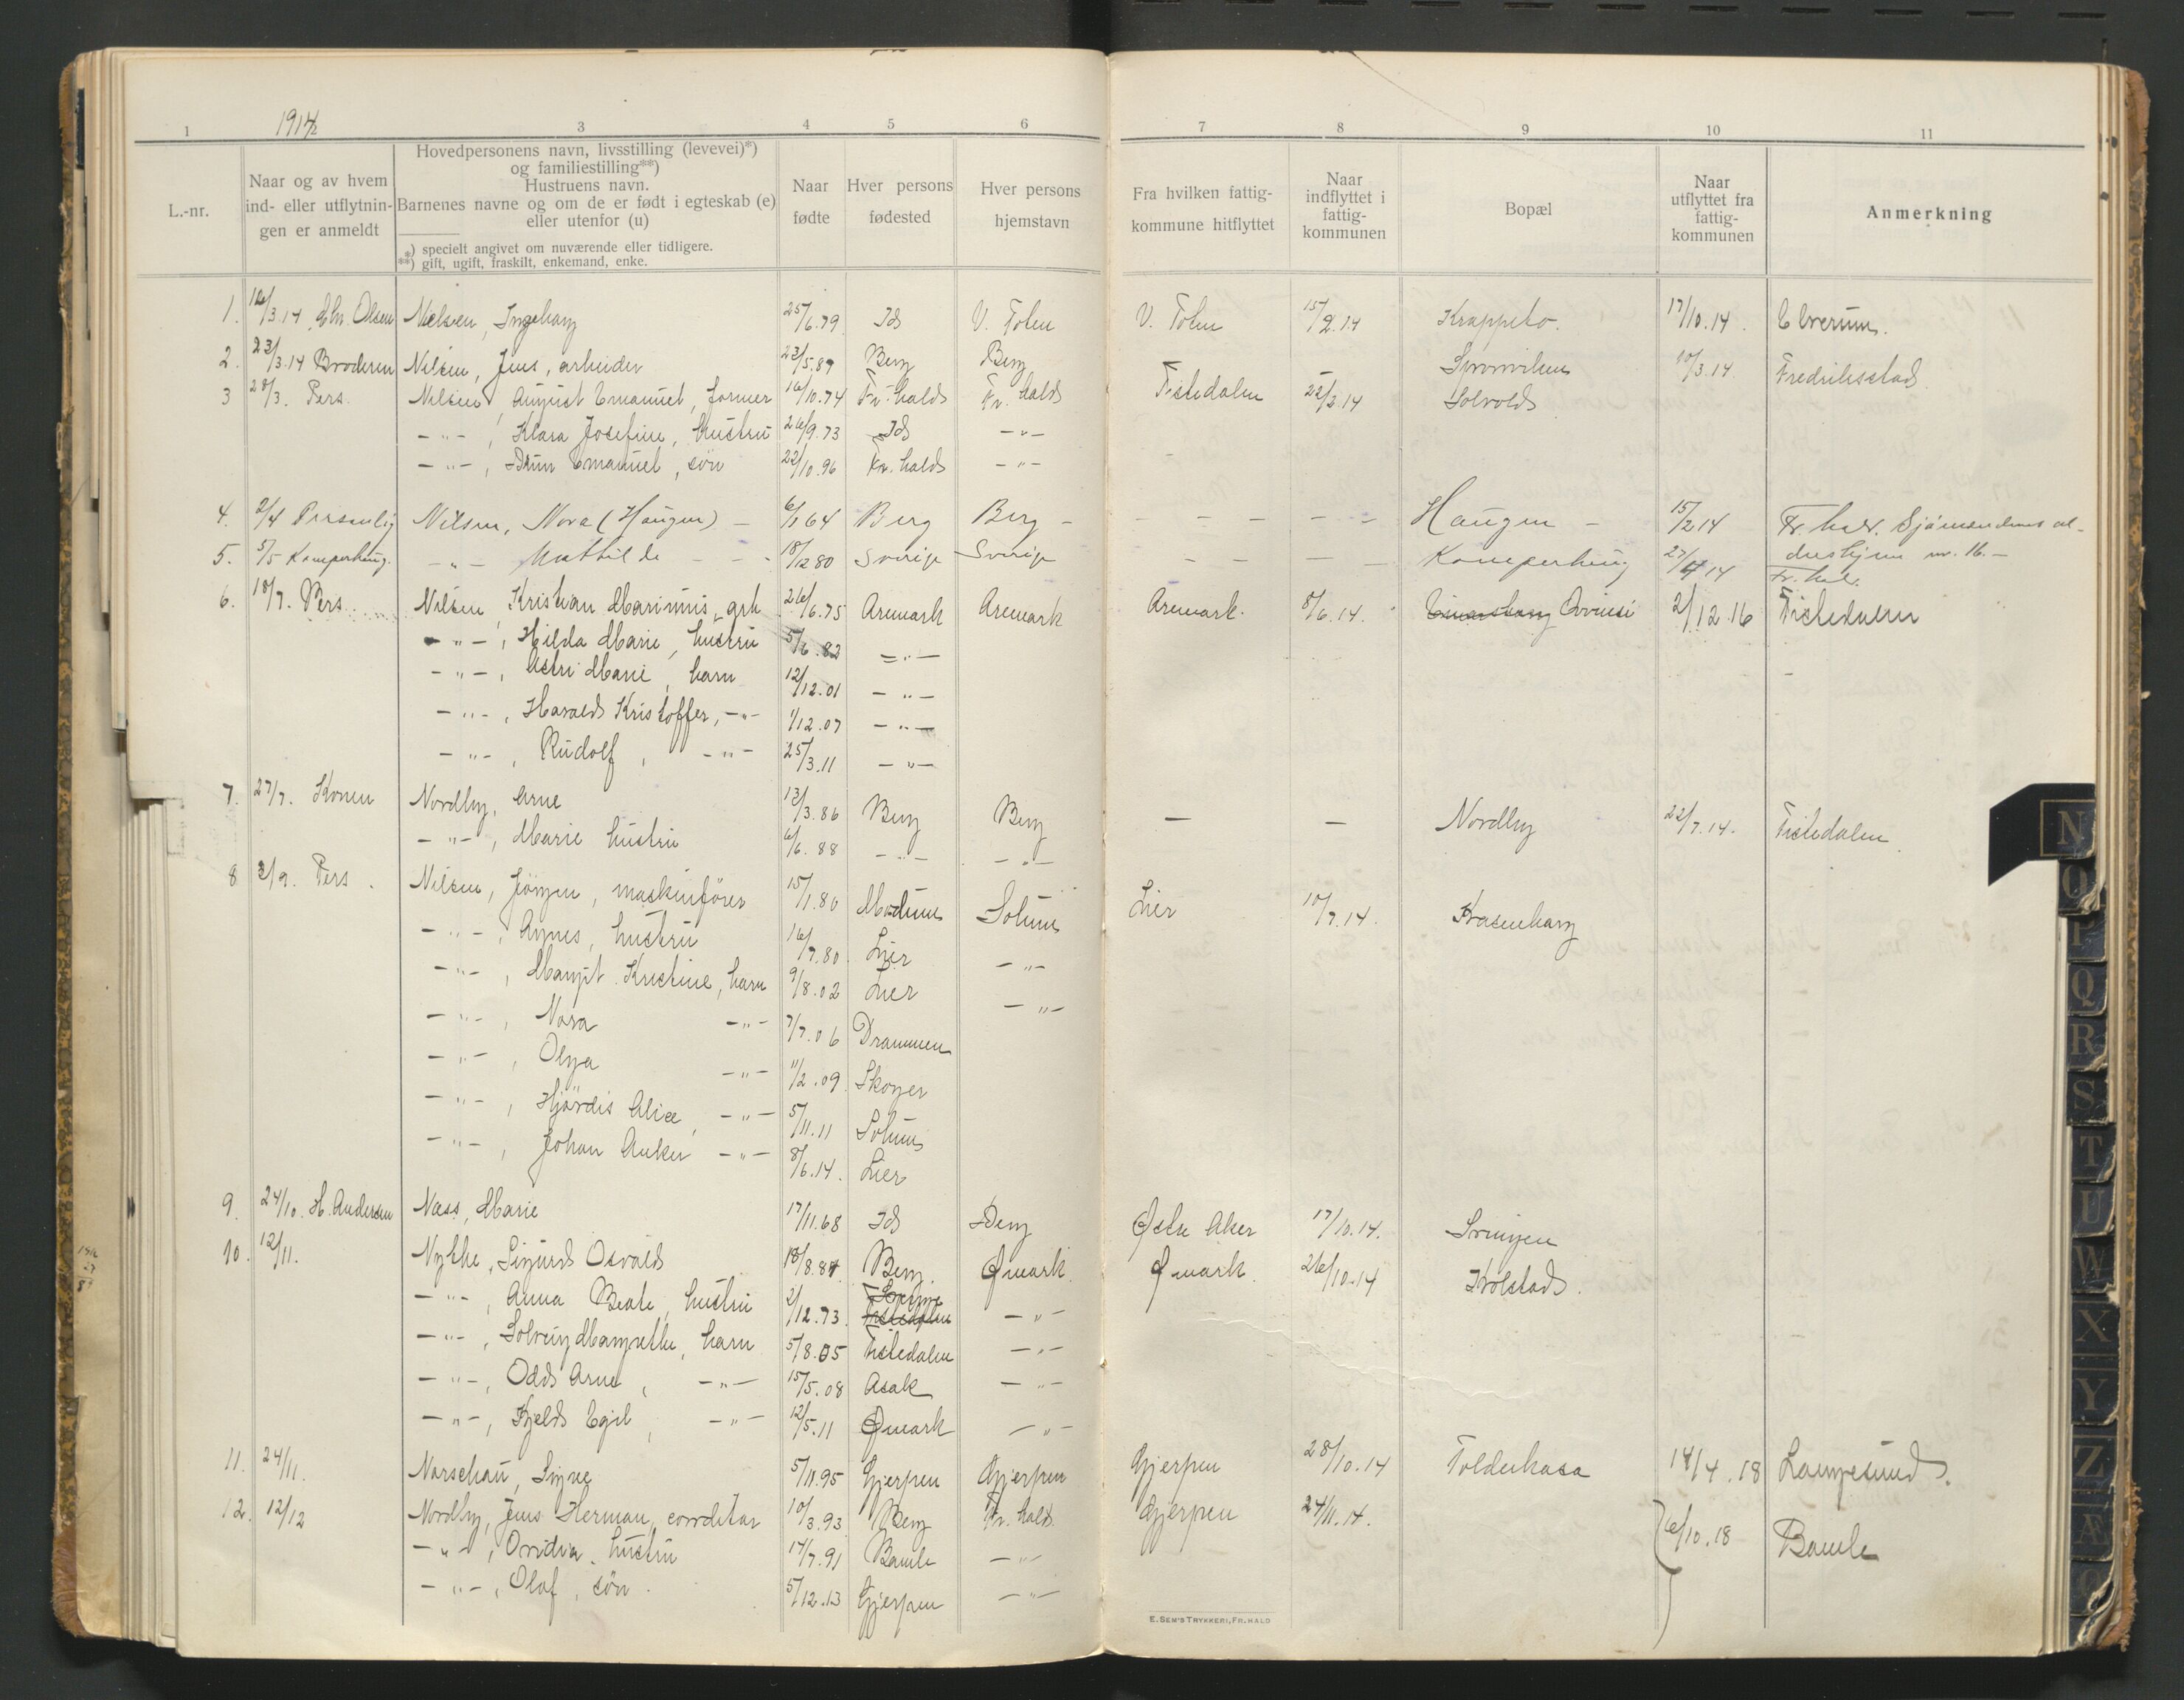 1914
1 3 4 5 6 7 8 9 10 11
L.-nr.
Naar og av hvem
ind- eller utflytnin-
gen er anmeldt
Hovedpersonens navn, livsstilling (levevei)*)
og familiestilling**)
Hustruens navn.
Barnenes navne og om de er født i egteskab (e)
eller utenfor (u)
*) specielt angivet om nuværende eller tidligere.
**) gift, ugift, fraskilt, enkemand, enke.
Naar
fødte
Hver persons
fødested
Hver persons
hjemstavn
Fra hvilken fattig-
kommune hitflyttet
Naar
indflyttet i
fattig-
kommunen
Bopæl
Naar
utflyttet fra
fattig-
kommunen
Anmerkning
1. 12/3.14 Chr. Olsen Nielsen, Ingeborg 25/6.79 Id V. Toten V. Toten 15/2.14 Krappeto. 17/10.14. Elverum.
2. 23/3.14 Broderen Nilsen, Jens, arbeider 23/5.89 Berg Berg 10/3.14 Fredriksstad
3 28/3. Pers. Nilsen, August Emanuel, former 16/10.74 Fr.halds Fr. halds Tistedalen 22/3.14 Solvold
-"-, Klara Josefine, hustru 26/9.73 Id -"-
-"-, Emanuel, søn 22/10.96 Fr. halds -"-
4. 2/4 Personlig Nilsen, Nora (Haugen) - 6/1 64 Berg Berg - - - - - - Haugen - 15/2 14 Fr. hald. Sjømændenes al-
5. 5/5 Kamperhaug. -"- Mathilde - - 18/12 80 Sverige Sverige - - - - Kamperhaug 27/4 14 dershjem nr. 16. -
Fr. hald.
6. 18/7. Pers. Nilsen, Kristian Marinius, arb. 26/6.75 Aremark Aremark Aremark. 8/6.14. 2/12.16 Tistedalen
-"-, Hilda Marie, hustru 5/6.82 -"-
-"-, Astri Marie, barn 12/12.01 -"-
-"-, Harald Kristoffer, -"- 1/12.07 -"-
-"-, Rudolf, -"- 25/3.11 -"-
7. 27/7. Konen Nordby, Arne 13/3.86 Berg Berg - - Nordby 22/7.14. Tistedalen
-"-, Marie hustru 6/6.88 -"- -"-
8 2/9. Pers. Nilsen, Jörgen, maskinfører 15/1.80 Modum Solum Lier 10/7.14. Krasenberg
-"-, Agnes, hustru 16/7.80 Lier -"-
-"-, Margit Kristine, barn 9/8.02 Lier -"-
-"-, Nora -"- 7/7.06 Drammen
-"-, Olga -"- 11/2.09 Skoger
-"-, Hjördis Alice, -"- 5/11.11 Solum
-"-, Johan Anker -"- 8/6.14. Lier
9. 24/10. H. Andersen Næss, Marie 17/11.68 Id Berg Østre Aker 17/10.14. Svingen
10. 12/11. Nythe, Sigurd Osvald 18/8.84. Berg. Ømark. Ømark. 26/10.14 Kolstad.
-"-, Anna Beate, hustru 2/12.73. Tistedalen -"-
-"-, Solveig Margrethe, barn 5/8.05 Tistedalen -"-
-"-, Odd Arne, -"- 15/5.08 Asak -"-
-"-, Kjeld Egil, -"- 12/5.11 Ømark -"-
11. 24/11. Narschau, Signe 5/11.95 Gjerpen Gjerpen Gjerpen 28/10.14 Folderhasa 14/4.18 Langesund.
12. 12/12 Nordby, Jens Herman, conditor 10/3.93 Berg Fr. hald Gjerpen 24/11.14. 6/10.18 Bamle
-"-, Ovidia, hustru 14/7.91 Bamle -"-
-"-, Olaf, søn. 5/12.13 Gjerpen -"-
E. SEM'S TRYKKERI, FR.HALD
N
O
P
Q
R
S
T
U
W
X
Y
Z
Æ
Ø